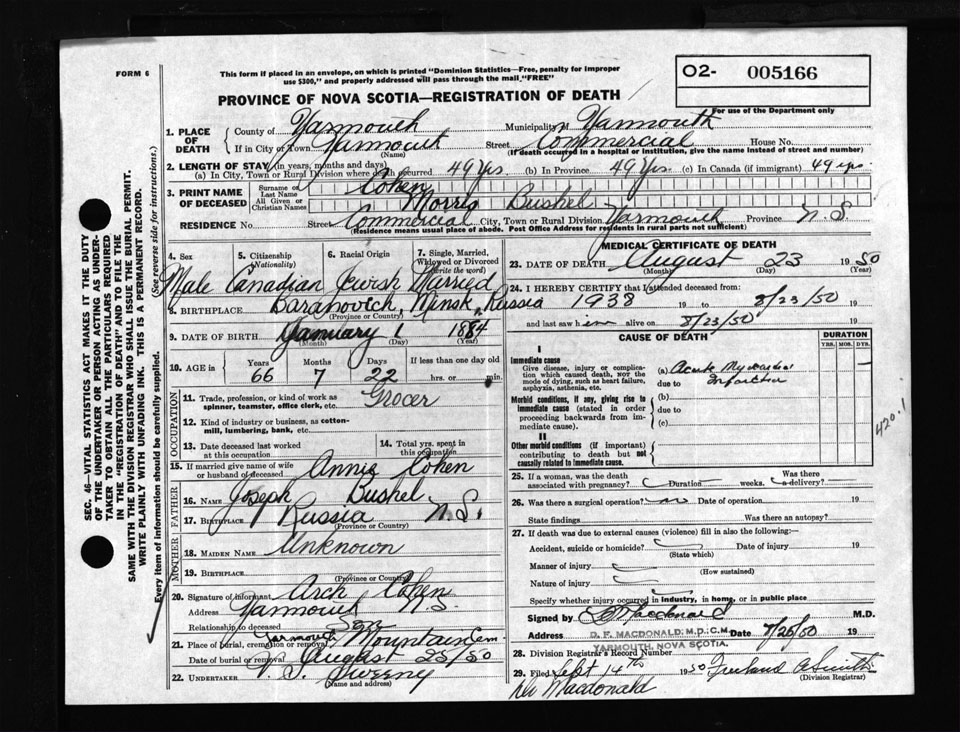 FORM 6
This form if placed in an envelope, on which is printed "Dominion Statistics—Free, penalty for improper
use $300," and properly addressed will pass through the mail "FREE"
O2- 005166
For use of the Department only
PROVINCE OF NOVA SCOTIA—REGISTRATION OF DEATH
1. PLACE OF DEATH County of Yarmouth Municipality of Yarmouth
If in City or Town Yarmouth Street Commercial House No.
(Name) (If death occurred in a hospital or institution, give the name instead of street and number)
2. LENGTH OF STAY (in years, months and days)
(a) In City, Town or Rural Division where death occurred 49 Yrs. (b) In Province 49 Yrs (c) In Canada (if immigrant) 49 yrs.
3. PRINT NAME OF DECEASED Surname or Last Name Cohen
All Given or Christian Names Morris Bushel
RESIDENCE No. Street Commercial City, Town or Rural Division Yarmouth Province N.S.
(Residence means usual place of abode. Post Office Address for residents in rural parts not sufficient)
4. Sex 5. Citizenship (Nationality) 6. Racial Origin 7. Single, Married, Widowed or Divorced (write the word)
Male Canadian Jewish Married
8. BIRTHPLACE Baranovich, Minsk, Russia
(Province or Country)
9. DATE OF BIRTH January 1 1884
(Month) (Day) (Year)
10. AGE in Years Months Days If less than one day old
66 7 22 hrs. or min.
OCCUPATION
11. Trade, profession, or kind of work as spinner, teamster, office clerk, etc. Grocer
12. Kind of industry or business, as cotton-mill, lumbering, bank, etc.
13. Date deceased last worked at this occupation 14. Total yrs. spent in this occupation
15. If married give name of wife or husband of deceased Annie Cohen
FATHER
16. Name Joseph Bushel
17. Birthplace Russia N.S.
(Province or Country)
MOTHER
18. MAIDEN NAME Unknown
19. BIRTHPLACE
(Province or Country)
20. Signature of informant Arch Cohen
Address Yarmouth N.S.
Relationship to deceased Son
21. Place of burial, cremation or removal Yarmouth Mountain Cem.
Date of burial or removal August 25/50
22. UNDERTAKER V. S. Sweeny
(Name and address)
MEDICAL CERTIFICATE OF DEATH
23. DATE OF DEATH August 23 1950
(Month) (Day) (Year)
24. I HEREBY CERTIFY that I attended deceased from:
1938 19 to 8/23/50 19
and last saw him alive on 8/23/50 19
CAUSE OF DEATH DURATION
YRS. MOS. DYS.
I
Immediate cause
Give disease, injury or complication which caused death, NOT the mode of dying, such as heart failure, asphyxia, asthenia, etc.
(a) Acute Myocardial
due to Infarction
Morbid conditions, if any, giving rise to immediate cause (stated in order proceeding backwards from immediate cause).
(b)
due to
(c)
420.1
II
Other morbid conditions (if important) contributing to death but not causally related to immediate cause.
25. If a woman, was the death associated with pregnancy? Duration weeks. Was there a delivery?
26. Was there a surgical operation? no Date of operation 19
State findings Was there an autopsy?
27. If death was due to external causes (violence) fill in also the following:—
Accident, suicide or homicide? Date of injury 19
(State which)
Manner of injury
(How sustained)
Nature of injury
Specify whether injury occurred in industry, in home, or in public place
Signed by Macdonald M.D.
Address D. F. MACDONALD M.D., C.M. YARMOUTH, NOVA SCOTIA. Date 19
28. Division Registrar's Record Number
29. Filed Sept 14th 1950
(Division Registrar)
Macdonald
SEC. 46—VITAL STATISTICS ACT MAKES IT THE DUTY
OF THE UNDERTAKER OR PERSON ACTING AS UNDER-
TAKER TO OBTAIN ALL THE PARTICULARS REQUIRED
IN THE "REGISTRATION OF DEATH" AND TO FILE THE
SAME WITH THE DIVISION REGISTRAR WHO SHALL ISSUE THE BURIAL PERMIT.
WRITE PLAINLY WITH UNFADING INK. THIS IS A PERMANENT RECORD.
Every item of information should be carefully supplied. (See reverse side for instructions.)